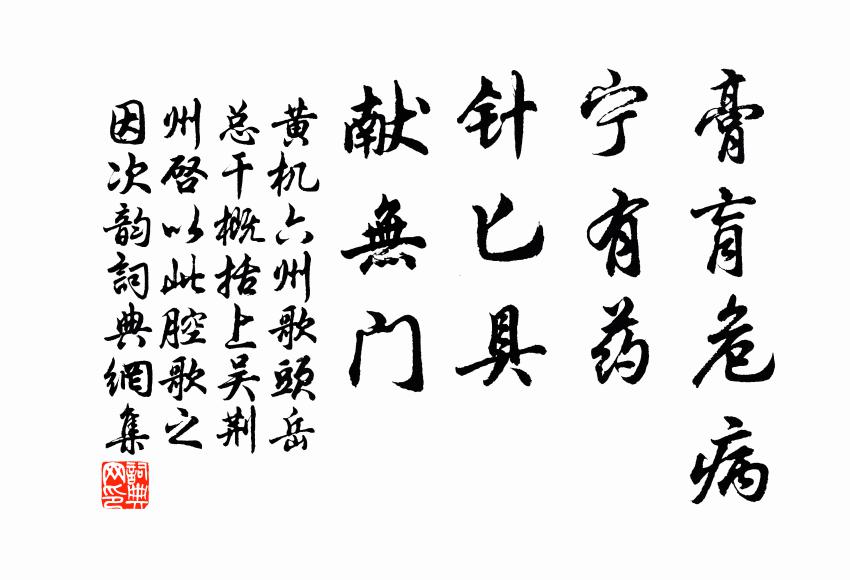 膏肓危病
宁有药
针匕具
献無门
黄机六州歌頭岳
总干概括上吴荆
州啓以此腔歌之
因次韵詞典網集
詞典
网印